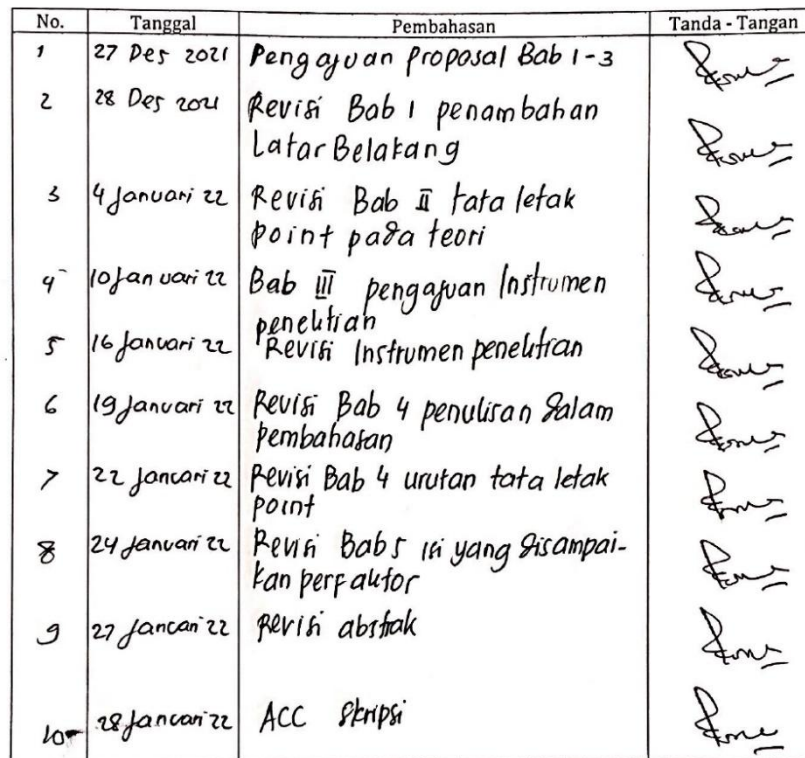 No. Tanggal Pembahasan Tanda - Tangan
1 27 Des 2021 Pengajuan Proposal Bab 1-3
2 28 Des 2021 Revisi Bab 1 penambahan
Latar Belakang
3 4 Januari 22 Revisi Bab II tata letak
point pada teori
4 10 Januari 22 Bab III pengajuan Instrumen
penelitian
5 16 Januari 22 Revisi Instrumen penelitian
6 19 Januari 22 Revisi Bab 4 penulisan dalam
pembahasan
7 22 Januari 22 Revisi Bab 4 urutan tata letak
point
8 24 Januari 22 Revisi Bab 5 isi yang disampai-
kan perfaktor
9 27 Januari 22 Revisi abstrak
10 28 Januari 22 ACC Skripsi